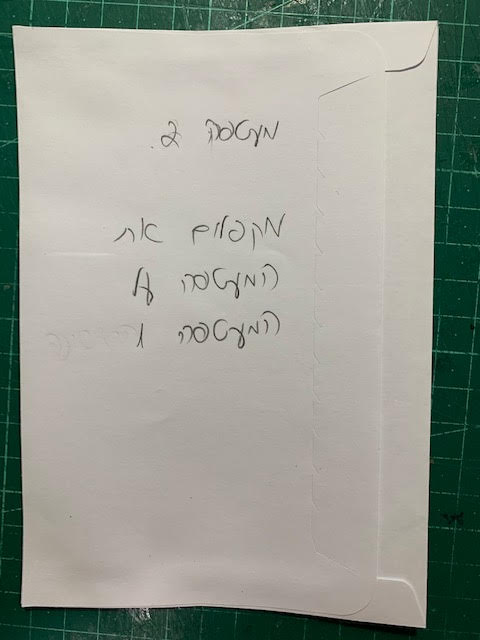 מעטפה 2.
מקפלים את
המעטפה על
המעטפה 1